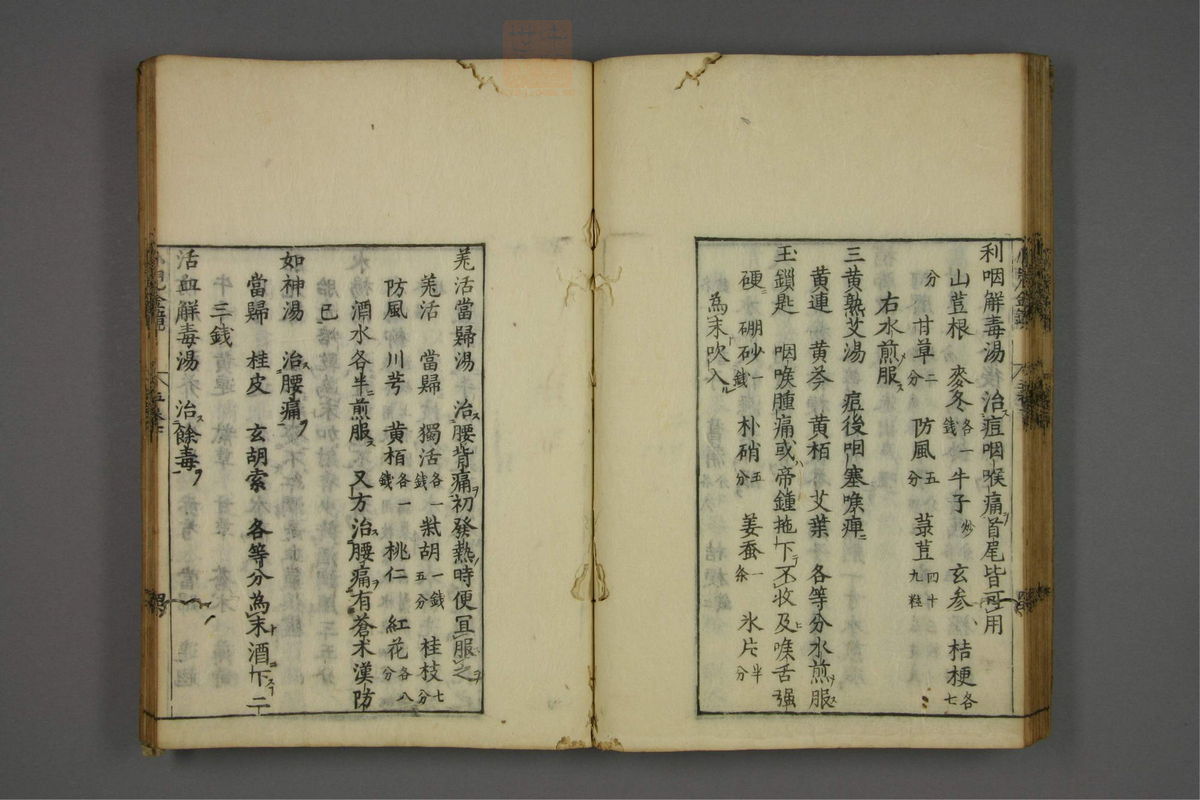 利咽解毒湯 治痘咽喉痛首尾皆可用
山荳根 麥冬各一錢 牛子炒 玄参 桔梗各七
分 甘草二分 防風五分 菉荳四十九粒
右水煎服
三黄熟艾湯 痘後咽塞喉痺
黄連 黄芩 黄栢 艾葉 各等分水煎服
玉鎖匙 咽喉腫痛或帝鍾拖下不收及喉舌强
硬 硼砂一錢 朴硝五分 姜蚕一条 氷片半分
為末吹入
羗活當歸湯 治腰背痛初發熱時便宜服之
羗活 當歸 獨活各一錢 柴胡一錢五分 桂枝七分
防風 川芎 黄栢各一錢 桃仁 紅花各八分
酒水各半煎服 又方治腰痛有蒼术漢防
已
如神湯 治腰痛
當歸 桂皮 玄胡索 各等分為末酒下二
三錢
活血解毒湯 治餘毒